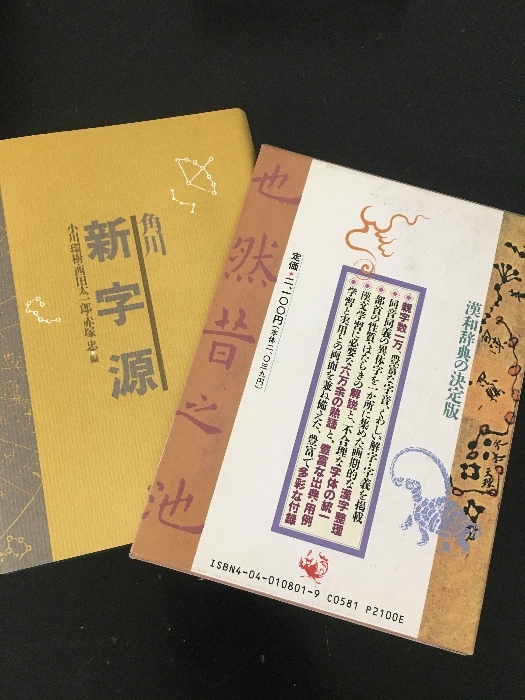 角川
新字源
小川環樹・西田太一郎・赤塚 忠 編
也然昔之池
定価・二、一〇〇円(本体二、〇三九円)
漢和辞典の決定版
親字数一万、豊富な字音・くわしい解字・字義を掲載
同音同義の異体字を一か所に集めた画期的な漢字整理
部首の性質・はたらきの解説と、不合理な字体の統一
漢文学習に必要な六万余の熟語と、豊富な出典・用例
学習と実用との両面を兼ね備えた、豊富で多彩な付録
ISBN4-04-010801-9 C0581 P2100E